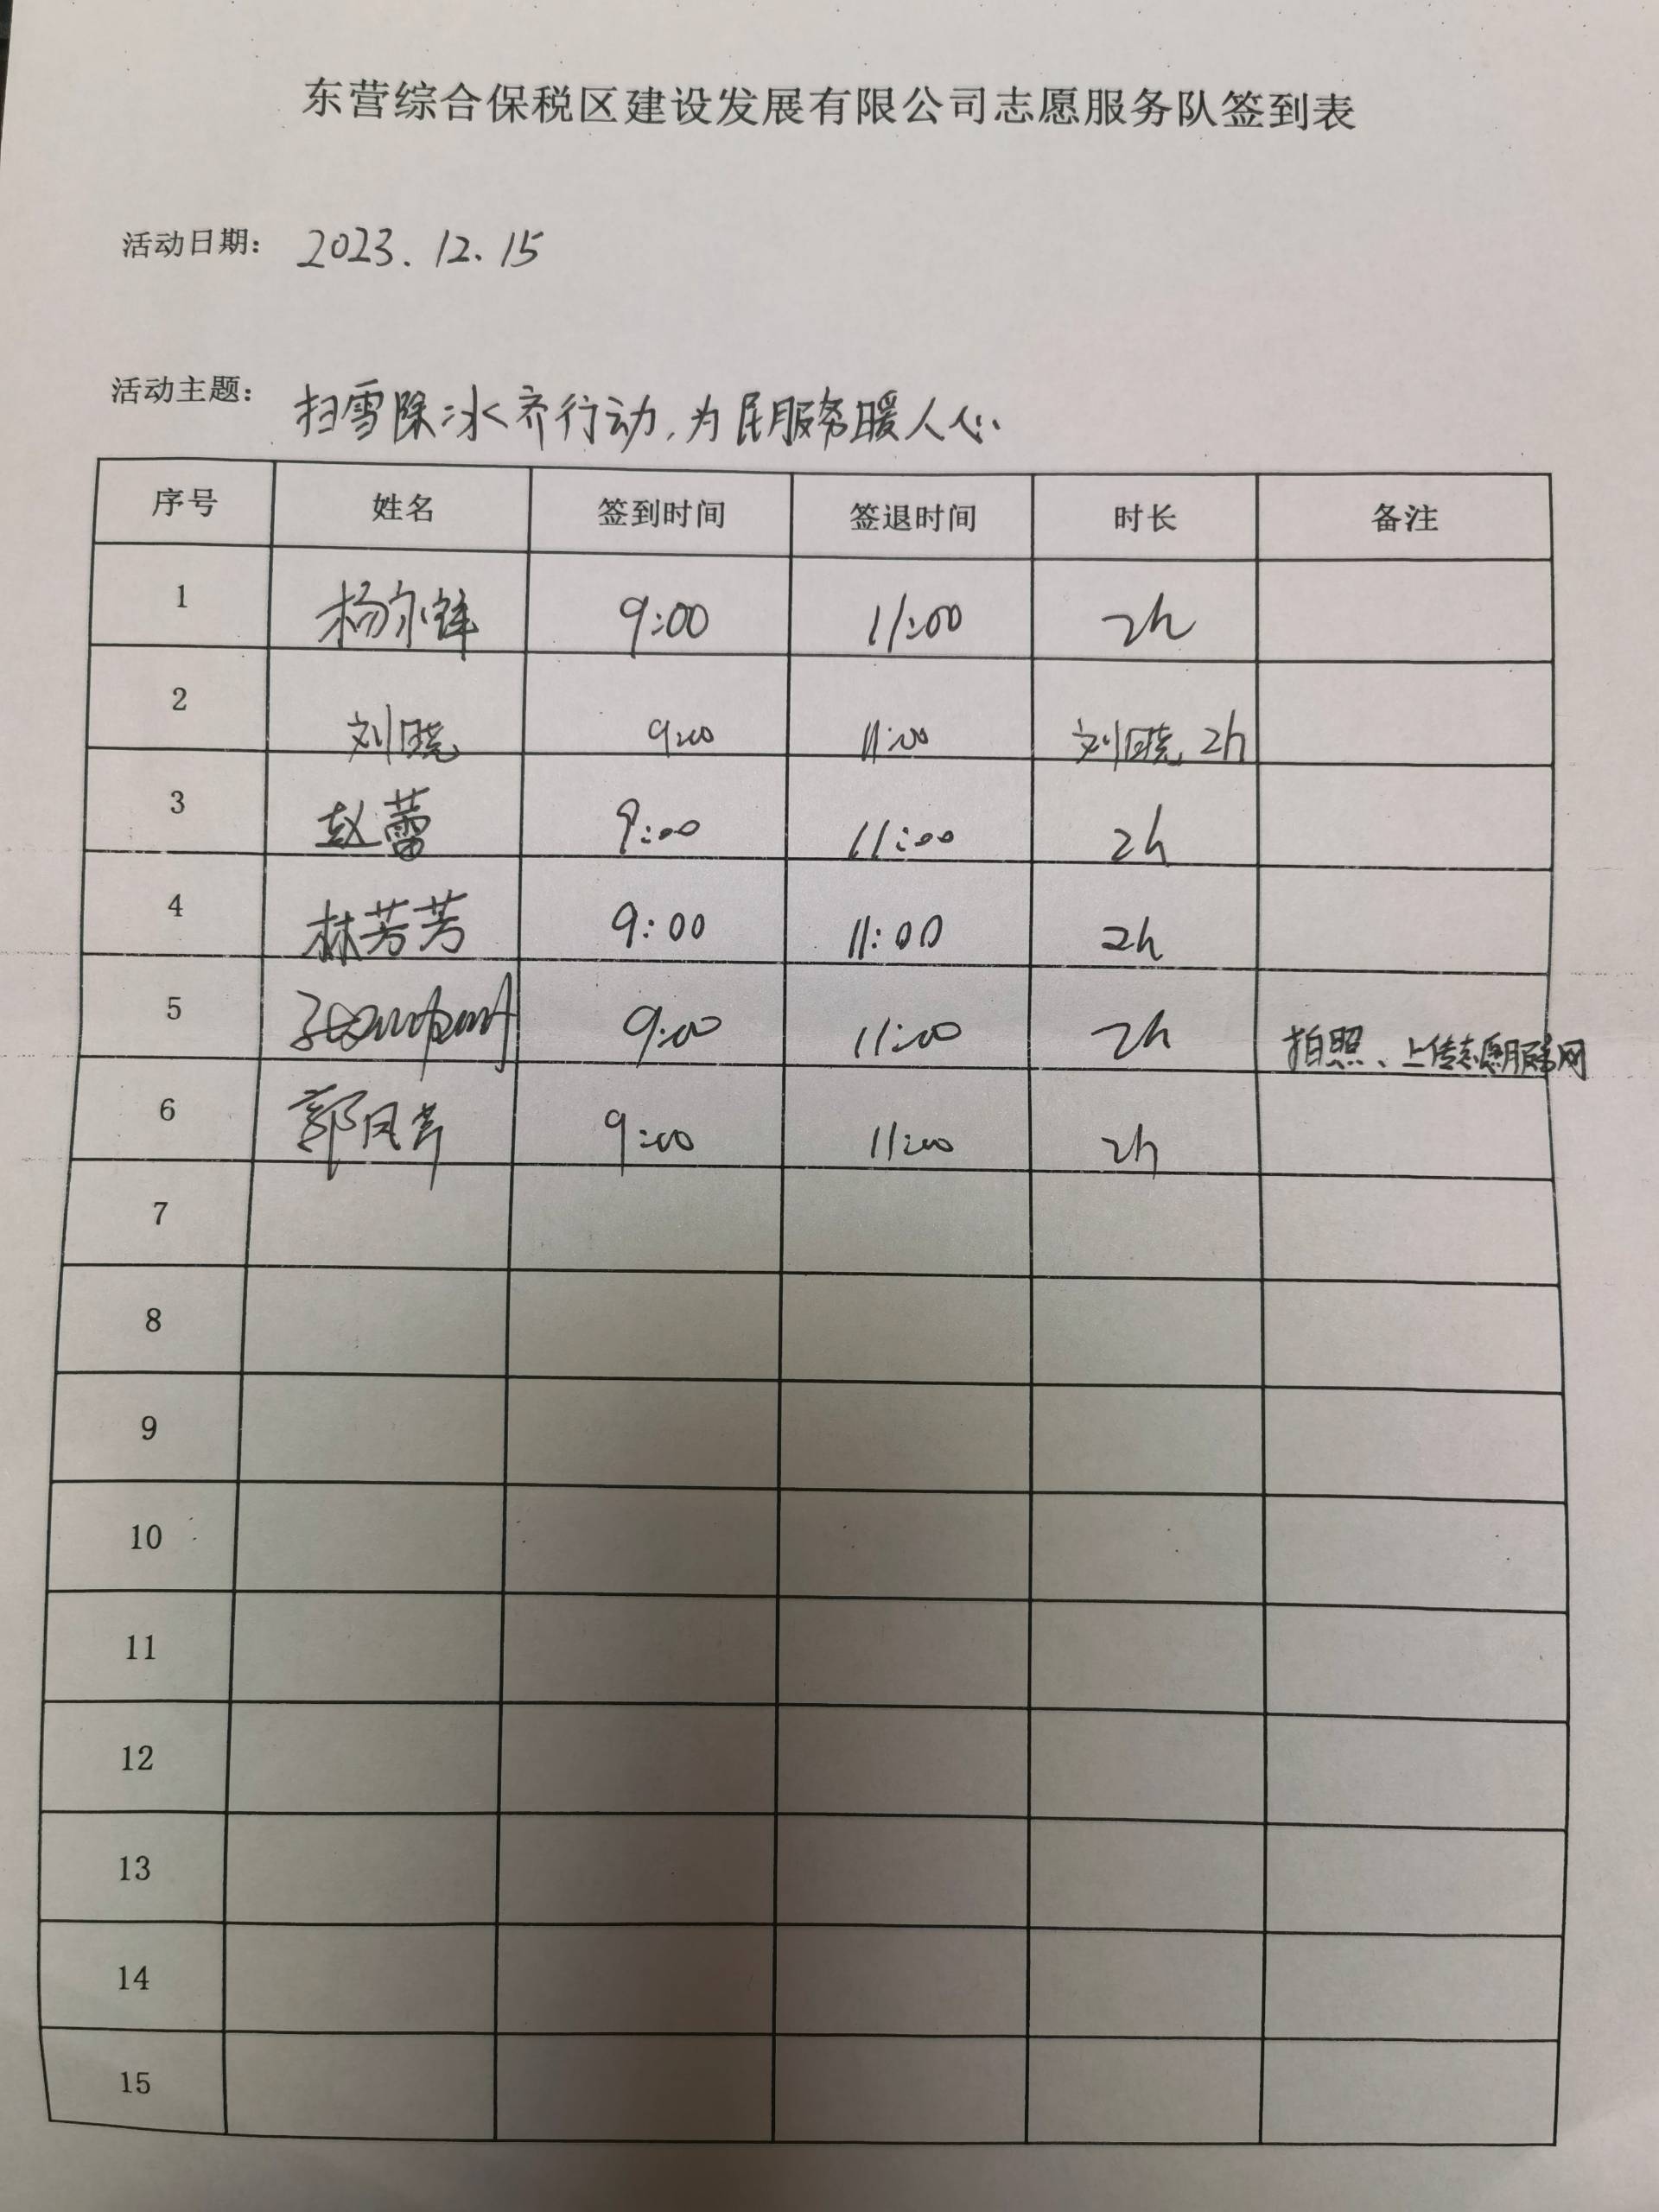 东营综合保税区建设发展有限公司志愿服务队签到表
活动日期: 2023.12.15
活动主题: 扫雪除冰齐行动,为民服务暖人心
序号 姓名 签到时间 签退时间 时长 备注
1 杨 9:00 11:00 2h
2 刘晓 9:00 11:00 刘晓 2h
3 赵蕾 9:00 11:00 2h
4 林芳芳 9:00 11:00 2h
5 9:00 11:00 2h 拍照、上传志愿服务网
6 郭凤芹 9:00 11:00 2h
7
8
9
10
11
12
13
14
15